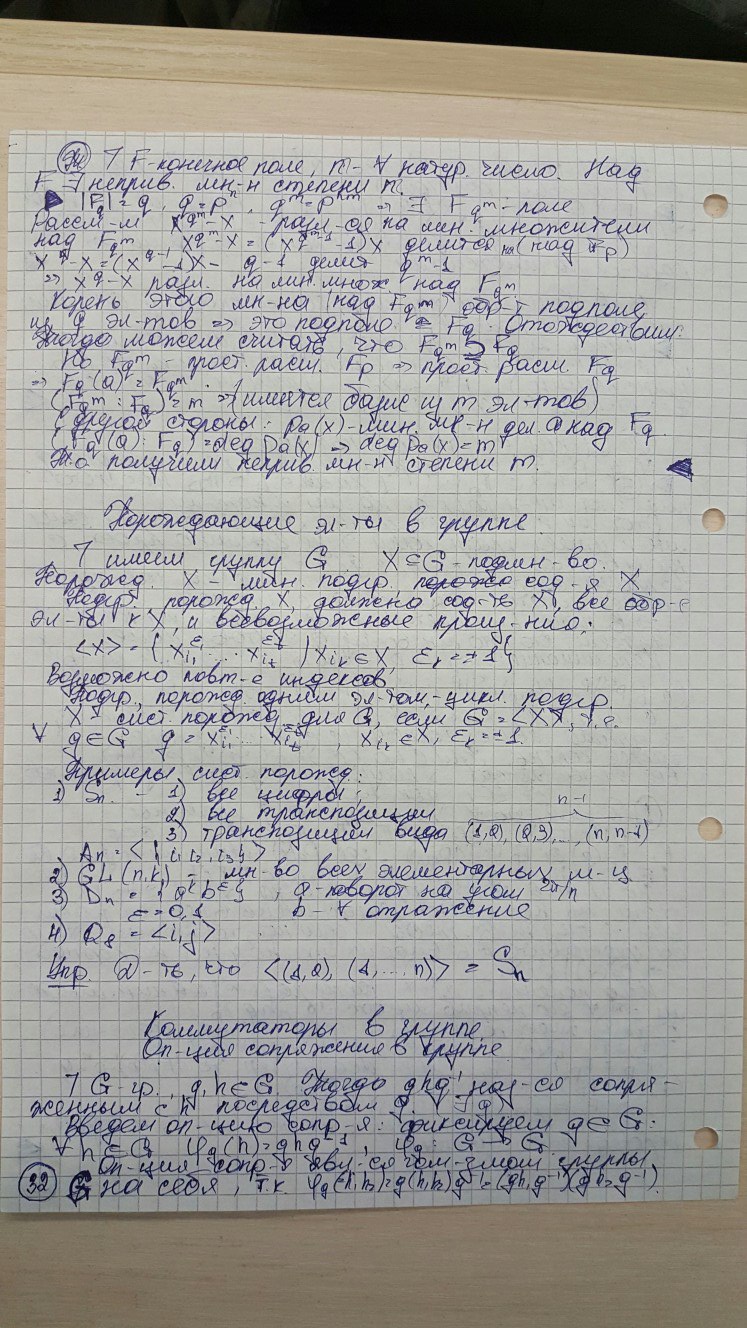 Th ⅂ F-конечное поле, m - ∀ натур. число. Над
F ∃ неприв. мн-н степени m.
|F| = q, q = pⁿ, q^m = p^{nm} ⇒ ∃ F_{q^m} - поле
Рассм-м x^{q^m} - x - разл-ся на лин. множители
над F_{q^m}, x^{q^m} - x = (x^{q^m-1} - 1)x делится на (над F_p)
x^q - x = (x^{q-1} - 1)x - q-1 делит q^m-1
⇒ x^q - x разл. на лин. множ над F_{q^m}
Корень этого мн-на (над F_{q^m}) обр-т подполе
из q эл-тов ⇒ это подполе = F_q. Отождествим.
Тогда можем считать, что F_{q^m} ⊃ F_q
Но F_{q^m} - прост. расш. F_p ⇒ прост. расш. F_q
⇒ F_q(a) = F_{q^m}.
(F_{q^m} : F_q) = m ⇒ (имеется базис из m эл-тов)
С другой стороны: p_a(x) - мин. мн-н дел. a над F_q.
(F_q(a) : F_q) = deg p_a(x) ⇒ deg p_a(x) = m
То получили неприв. мн-н степени m.
Порождающие эл-ты в группе.
⅂ имеем группу G X ⊆ G - подмн-во.
Порожд. X - мин. подгр. сод-я X
Подгр. порожд X, должна сод-ть X, все обр-е
эл-ты к X, и всевозможные произ-ния:
<X> = { x_{i_1}^{ε_1} ... x_{i_t}^{ε_t} | x_{i_k} ∈ X, ε_k = ±1 }
Возможно повт-е индексов
Подгр., порожд. одним эл-том, - цикл. подгр.
X - сист. порожд. для G, если G = <X>, т.е.
∀ g ∈ G g = x_{i_1}^{ε_1} ... x_{i_t}^{ε_t}, x_{i_k} ∈ X, ε_k = ±1.
Примеры сист. порожд.:
1) S_n - 1) все циклы;
2) все транспозиции
n-1
3) транспозиции вида (1,2), (2,3), ..., (n, n-1)
A_n = <i_1, i_2, i_3>
2) GL(n,k) - мн-во всех элементарных м-ц
3) D_n = { a^k b^ε }, a - поворот на угол 2π/n
ε = 0,1 b - ∀ отражение
4) Q_8 = <i,j>
Упр. Д-ть, что <(1,2), (1,...,n)> = S_n
Коммутаторы в группе
Оп-ция сопряжения в группе
⅂ G - гр., g, h ∈ G Тогда ghg^{-1} наз-ся сопря-
женным с h посредством g.
Введем оп-цию сопр-я: фиксируем g ∈ G:
∀ h ∈ G φ_g(h) = ghg^{-1}, φ_g: G → G
Оп-ция сопр-я явл-ся гом-змом группы
32 G на себя, т.к. φ_g(h_1h_2) = g(h_1h_2)g^{-1} = (gh_1g^{-1})(gh_2g^{-1})